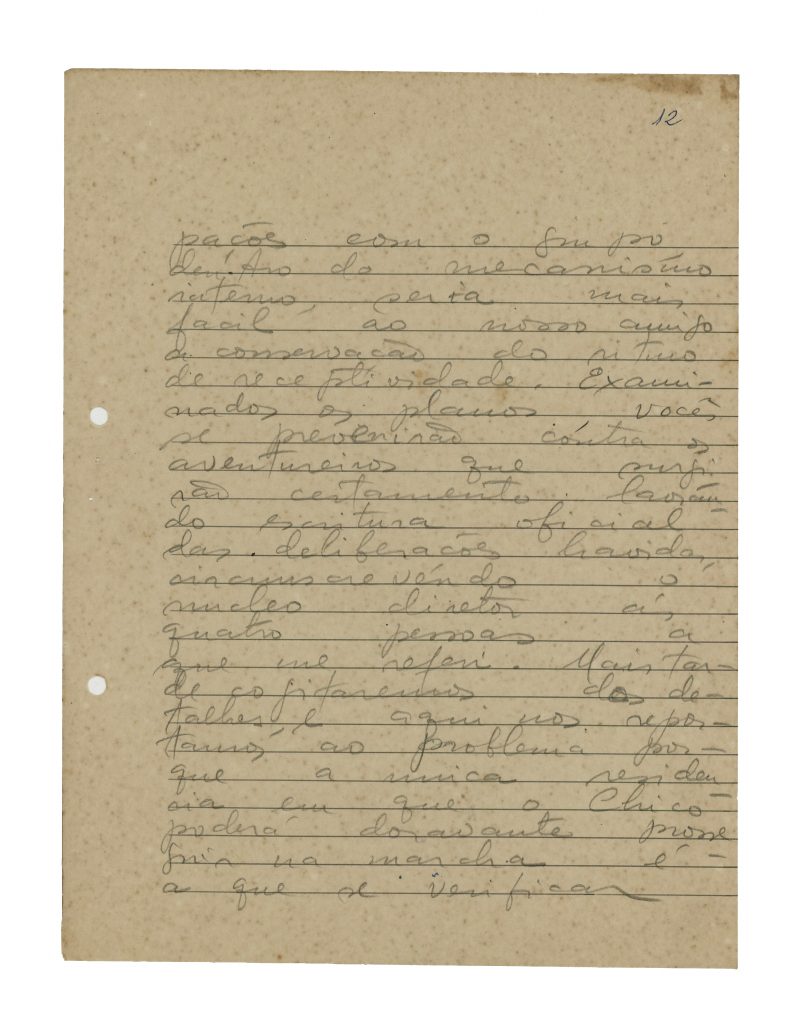 12
pações com o grupo
dentro do mecanismo
interno, seria mais
facil ao nosso amigo
a conservação do ritmo
de receptividade. Exami-
nados os planos vocês
se prevenirão contra os
aventureiros que surgi
rão certamente. lavran-
do escritura oficial
das deliberações havidas,
circunscrevendo o
nucleo diretor ás
quatro pessoas a
que me referi. Mais tar-
de cogitaremos dos de-
talhes e aqui nos repor-
tamos ao problema por-
que a unica residen
cia em que o Chico
poderá doravante prosse
guir na marcha é -
a que se verificar